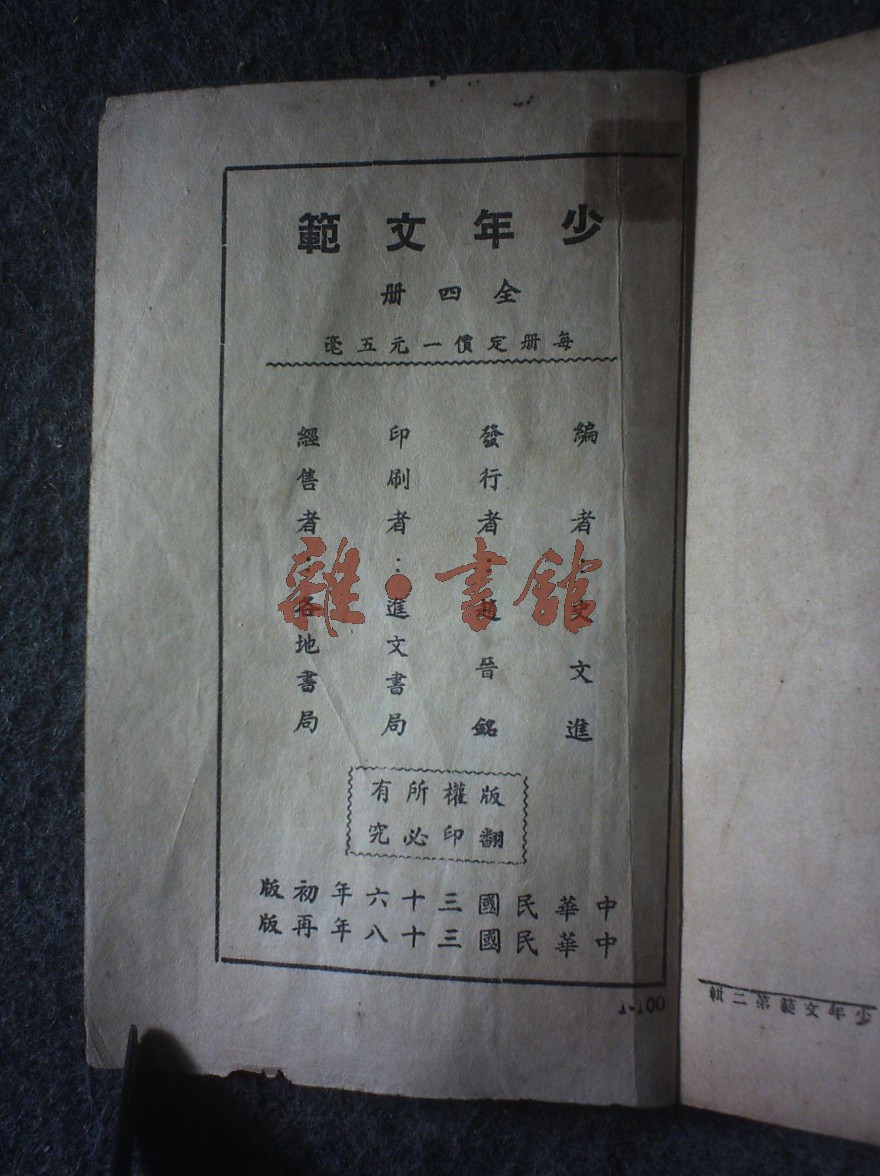 少年文範
全四册
每册定價一元五毫
編者：史文進
發行者：趙晉銘
印刷者：進文書局
經售者：各地書局
版權所有
翻印必究
中華民國三十六年初版
中華民國三十八年再版
1-100
少年文範第二輯
雜·書館